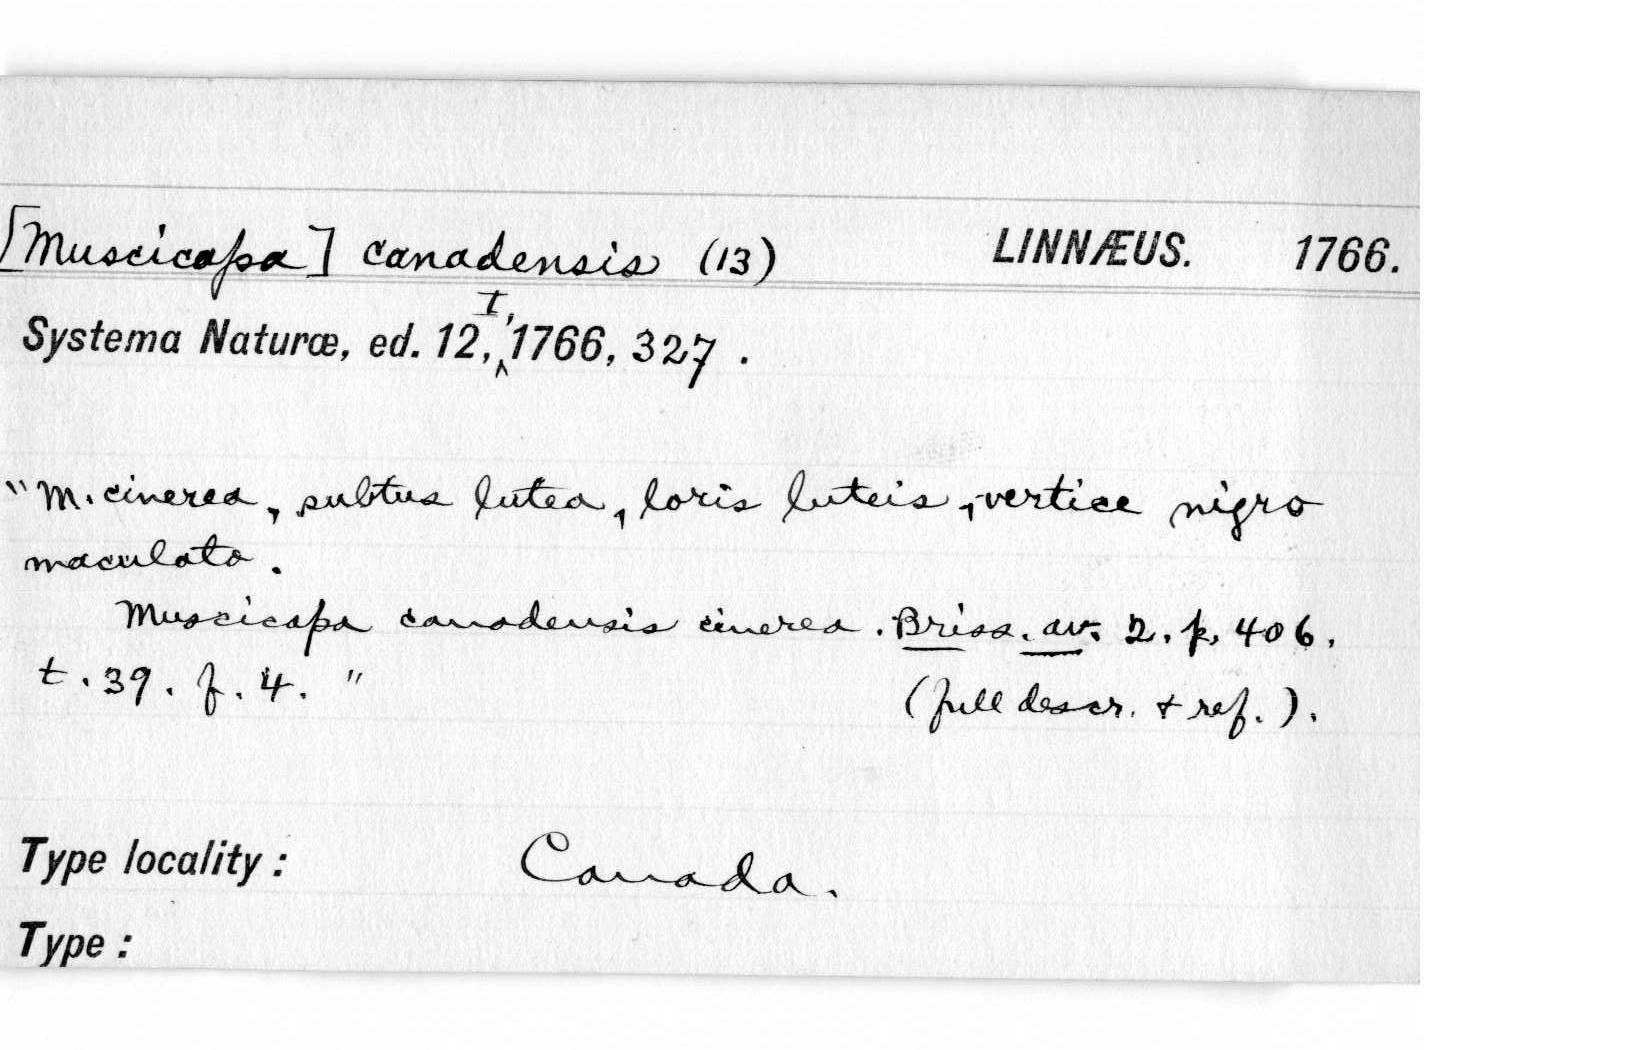 [Muscicapa] canadensis (13) LINNÆUS. 1766.
Systema Naturæ, ed. 12, I, 1766, 327.
"M. cinerea, subtus lutea, loris luteis, vertice nigro
maculato.
Muscicapa canadensis cinerea. Briss. av. 2. p. 406.
t. 39. f. 4."
(full descr. & ref.).
Type locality: Canada.
Type: